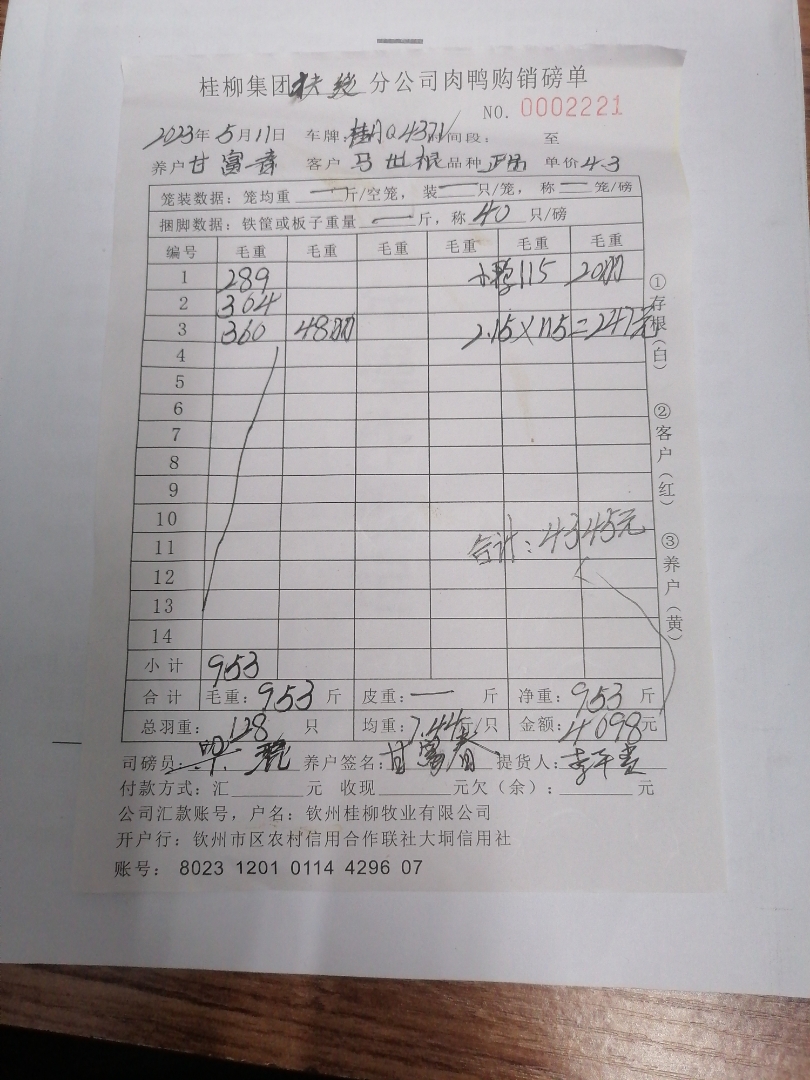 桂柳集团扶绥分公司肉鸭购销磅单
NO. 0002221
2023年5月11日 车牌: 时间段: 至
养户甘富春 客户马世根品种 单价4.3
笼装数据:笼均重一斤/空笼,装一只/笼,称一笼/磅
捆脚数据:铁筐或板子重量一斤,称40只/磅
编号 毛重 毛重 毛重 毛重 毛重 毛重
1 289 115 20羽
2 304
3 360 48羽 2.15×115=247元
4
5
6
7
8
9
10
合计:4345元
11
12
13
14
小计 953
合计 毛重:953斤 皮重:一斤 净重:953斤
总羽重:128只 均重:7.44斤/只 金额:4098元
司磅员: 养户签名:甘富春 提货人:
付款方式:汇 元 收现 元欠(余): 元
公司汇款账号,户名:钦州桂柳牧业有限公司
开户行:钦州市区农村信用合作联社大垌信用社
账号: 8023 1201 0114 4296 07
①存根(白) ②客户(红) ③养户(黄)